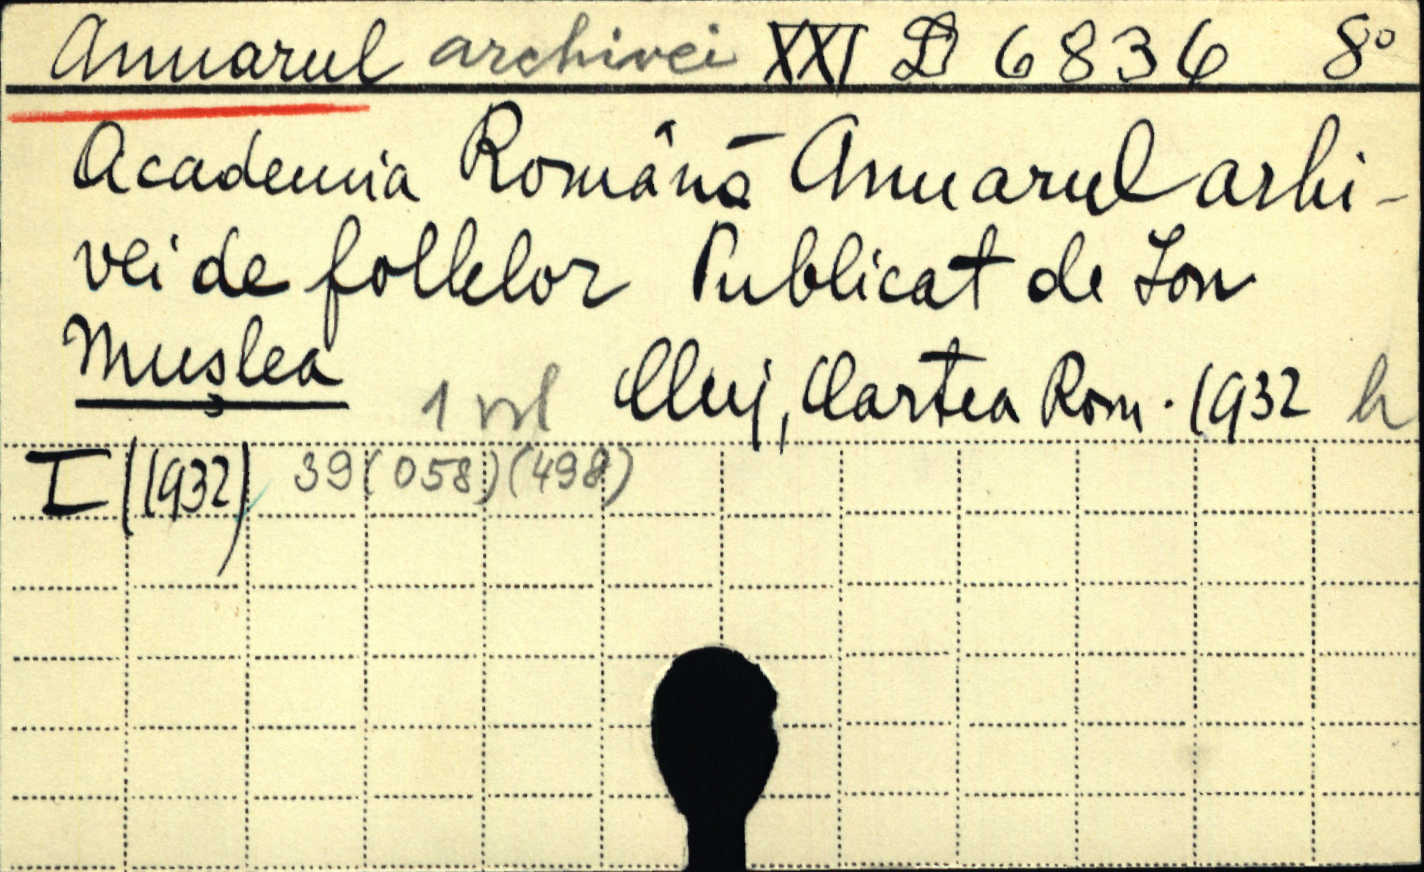 Anuarul archivei XXI D 6836 8°
Academia Română Anuarul arhi-
vei de folklor Publicat de Ion
Muşlea 1 vol Cluj, Cartea Rom. 1932 h
I (1932) 39(058)(498)